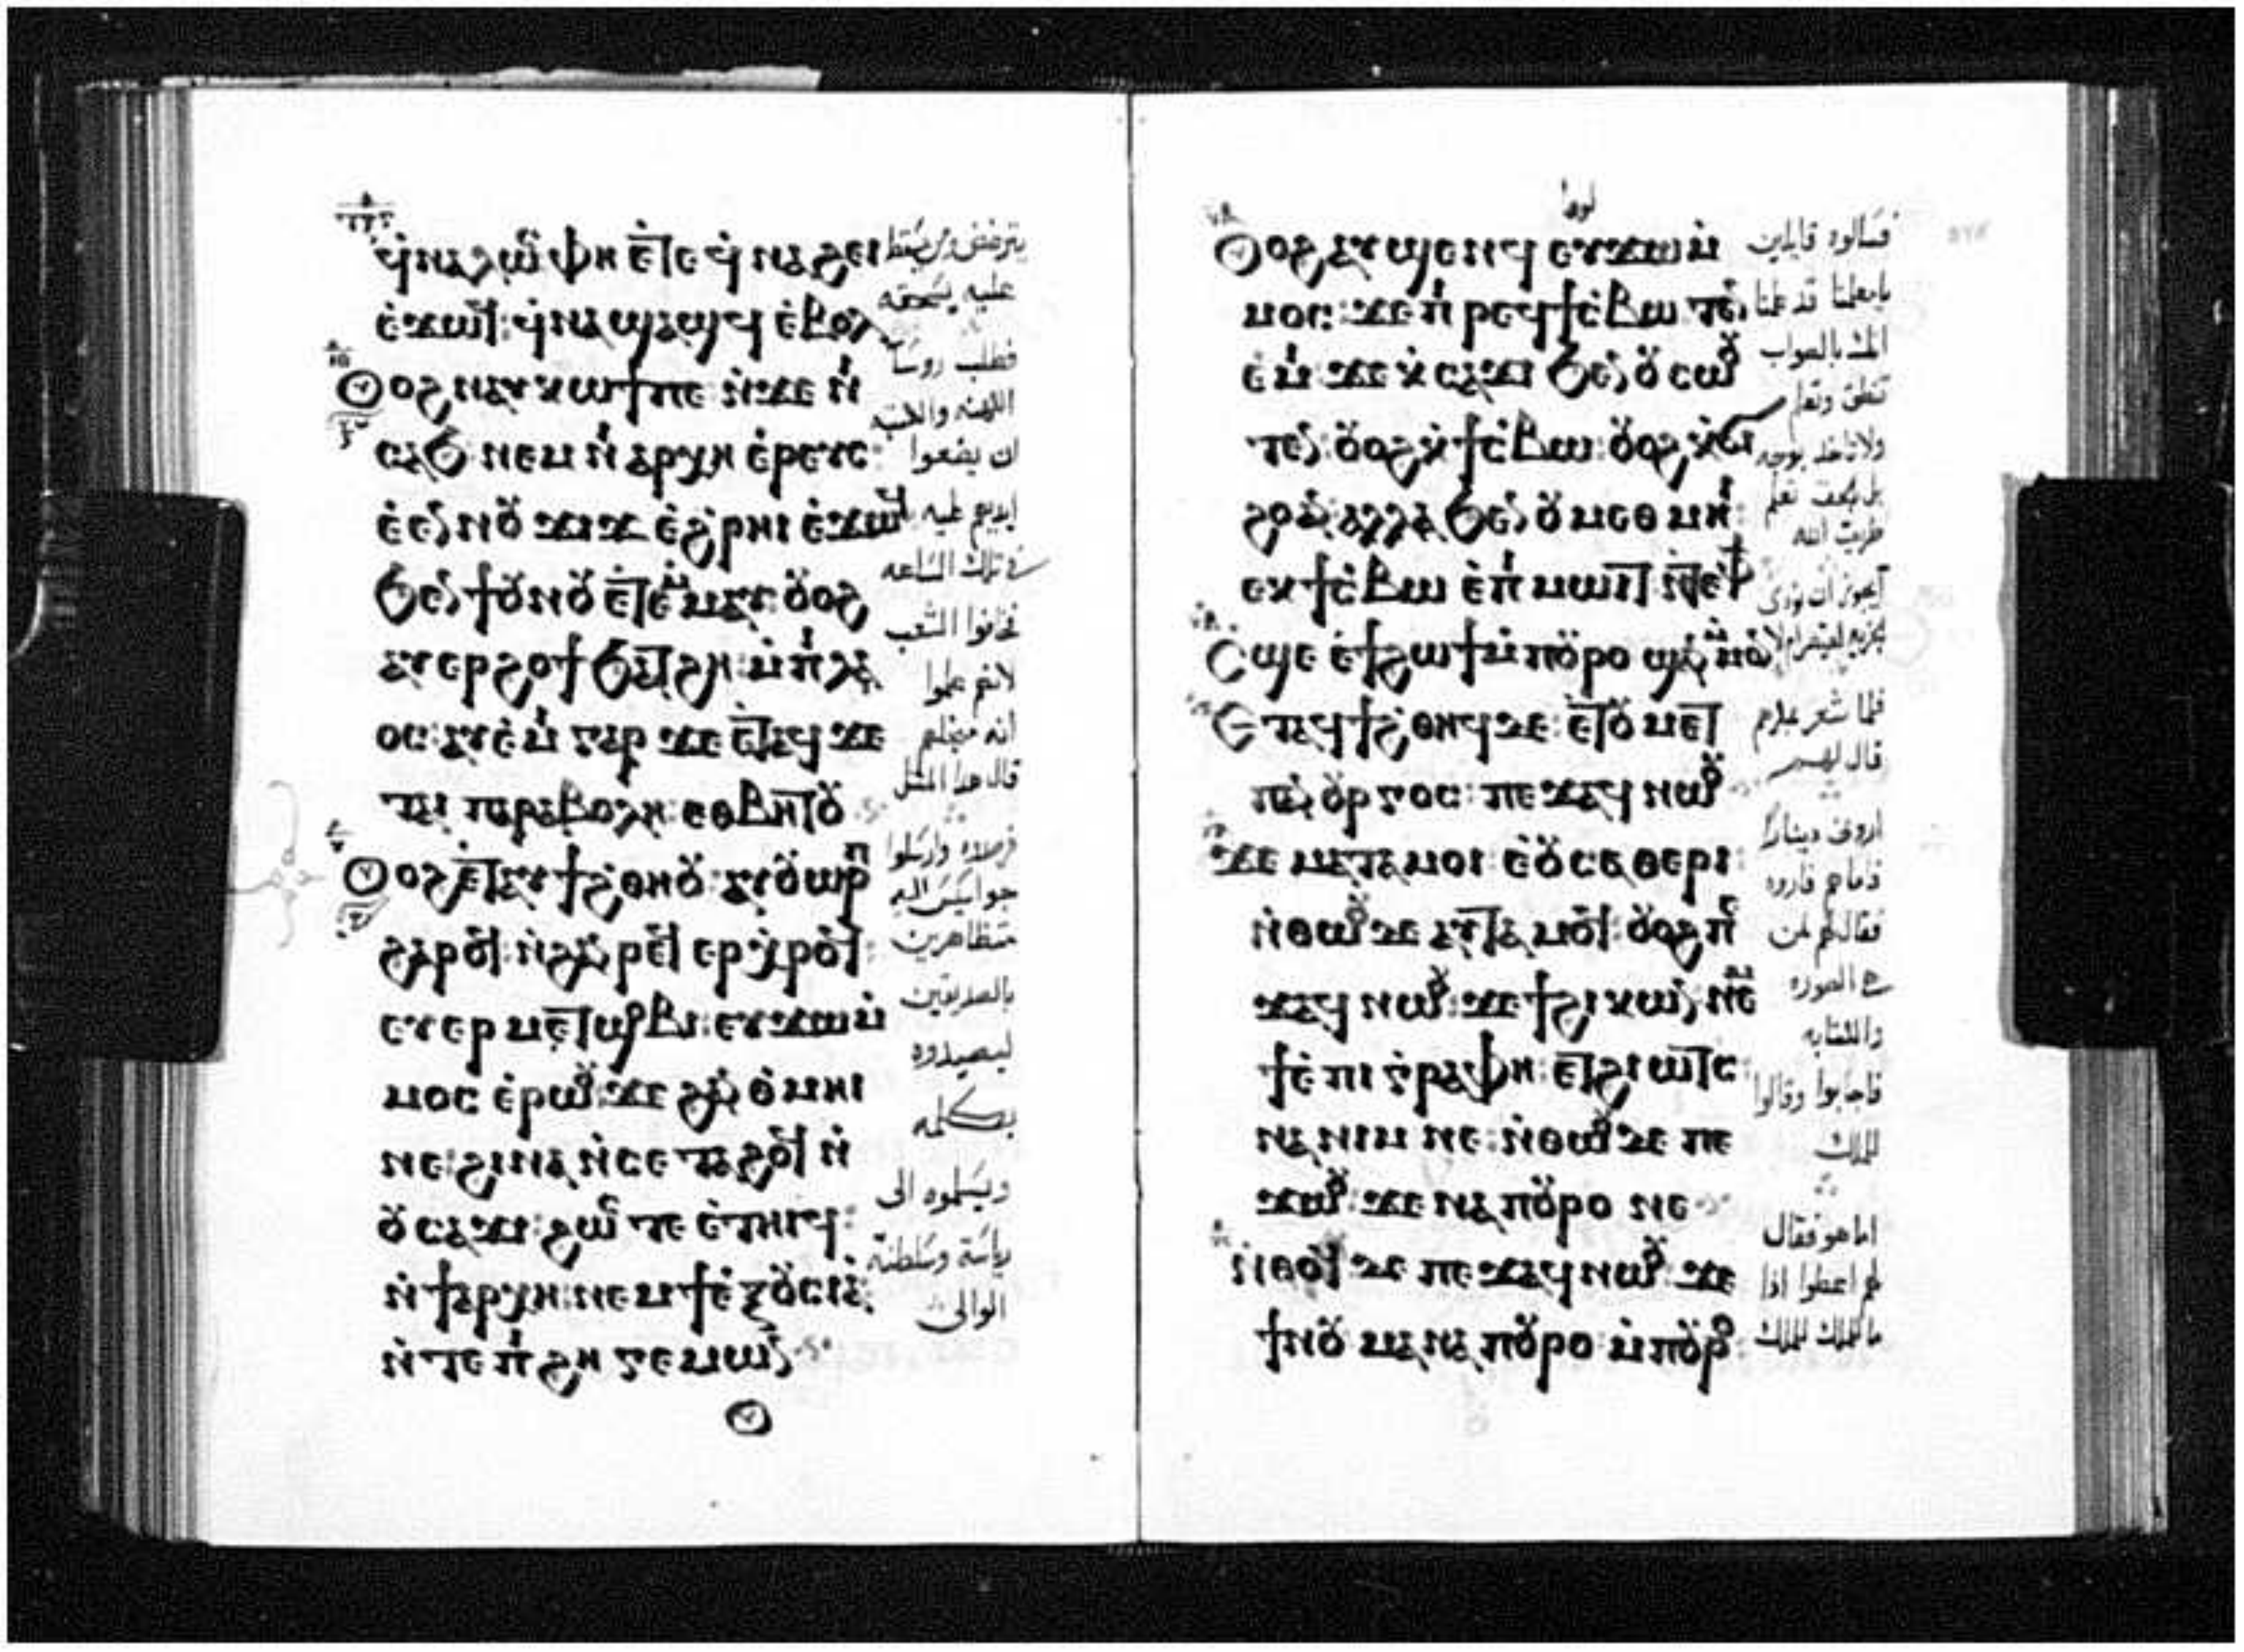 ϥ̀ⲛⲁⲗⲱⲥ ⲫⲏ ⲉ̀ⲧⲉ ϥ̀ⲛⲁϩⲉⲓ
ⲉ̀ϫⲱϥ: ϥ̀ⲛⲁϣⲁϣϥ ⲉ̀ⲃⲟⲗ
ⲟⲩⲟϩ ⲛⲁⲩⲕⲱϯ ⲡⲉ ⲛ̀ϫⲉ ⲛⲓ
ⲥⲁϧ ⲛⲉⲙ ⲛⲓⲁⲣⲭⲏⲉ̀ⲣⲉⲩⲥ:
ⲉ̀ⲉⲛ ⲛⲟⲩϫⲓϫ ⲉ̀ϩ̀ⲣⲏⲓ ⲉ̀ϫⲱϥ
ϧⲉⲛ ϯⲟⲩⲛⲟⲩ ⲉ̀ⲧⲉⲙⲙⲁⲩ: ⲟⲩⲟϩ
ⲁⲩⲉⲣϩⲟϯ ϧⲁⲧϩⲏ: ⲙ̀ⲡⲓⲗⲁ
ⲟⲥ: ⲁⲩⲉ̀ⲙⲓ ⲅⲁⲣ ϫⲉ ⲉ̀ⲧⲁϥϫⲉ
ⲧⲁⲓ ⲡⲁⲣⲁⲃⲟⲗⲏ: ⲉⲑⲃⲏⲧⲟⲩ
ⲟⲩⲟϩ ⲉ̀ⲧⲁⲩϯϩ̀ⲑⲏⲟⲩ: ⲁⲩⲟⲩⲱⲣⲡ
ϩⲁⲣⲟϥ: ⲛ̀ϩⲁⲛⲣⲉϥ ⲉⲣⲭ̀ⲣⲟϥ:
ⲉⲩⲉⲣ ⲙⲉⲧϣⲟⲃⲓ: ⲉⲩϫⲱⲙ̀
ⲙⲟⲥ ⲉ̀ⲣⲱⲟⲩ: ϫⲉ ϩⲁⲛⲑ̀ⲙⲏⲓ
ⲛⲉ: ϩⲓⲛⲁ ⲛ̀ⲥⲉⲧⲁϩⲟϥ ⲛ̀
ⲟⲩⲥⲁϫⲓ: ϩⲱⲥⲧⲉ ⲉ̀ⲧⲏⲓϥ:
ⲛ̀ϯⲁⲣⲭⲏ: ⲛⲉⲙ ϯⲉ̀ⲝⲟⲩⲥⲓⲁ:
ⲛ̀ⲧⲉ ⲡⲓϩⲏⲅⲉⲙⲱⲛ
يترضض ومن يسقط
عليه يسحقه
فطلب روسا
الكهنه والكتبه
ان يضعوا
ايديهم عليه
في تلك الساعه
فخافوا الشعب
لانهم علموا
انه من اجلهم
قال هدا المثل
فرصدوه وارسلوا
جواسيس اليه
متظاهرين
بالصديقين
ليصيدوه
بكلمه
ويسلموه الى
رياسة وسلطنة
الوالى
لوقا
ⲟⲩⲟϩ ⲁⲩϣⲉⲛϥ ⲉⲩϫⲱⲙ̀
ⲙⲟⲥ: ϫⲉ ⲡⲓⲣⲉϥϯⲥ̀ⲃⲱ ⲧⲉⲛ
ⲉ̀ⲙⲓ ϫⲉ ⲕ̀ⲥⲁϫⲓ ϧⲉⲛ ⲟⲩⲥⲱⲟⲩ
ⲧⲉⲛ: ⲟⲩⲟϩ ⲕ̀ϯⲥ̀ⲃⲱ: ⲟⲩⲟϩ ⲕ̀ϭⲓ
ϩⲟ ⲁⲛ: ⲁⲗⲗⲁ ϧⲉⲛ ⲟⲩⲙⲉⲑⲙⲏⲓ:
ⲉⲕϯⲥ̀ⲃⲱ ⲉ̀ⲡⲓⲙⲱⲓⲧ ⲛ̀ⲧⲉ ⲫϯ
ⲥϣⲉ ⲉ̀ϯϩⲱϯ ⲙ̀ⲡⲟⲩⲣⲟ ϣⲁⲛ ⲙ̀ⲙⲟⲛ
ⲉⲧⲁϥϯϩ̀ⲑⲏϥ ⲇⲉ: ⲉ̀ⲧⲟⲩⲙⲉⲧ
ⲡⲁⲛⲟⲩⲣⲅⲟⲥ: ⲡⲉϫⲁϥ ⲛⲱⲟⲩ
ϫⲉ ⲙⲁⲧⲁⲙⲟⲓ ⲉ̀ⲟⲩⲥⲁⲑⲉⲣⲓ:
ⲛ̀ⲑⲱⲟⲩ ⲇⲉ ⲁⲩⲧⲁⲙⲟϥ: ⲟⲩⲟϩ ⲡⲉ
ϫⲁϥ ⲛⲱⲟⲩ: ϫⲉ ϯϩⲓⲕⲱⲛ ⲛⲉⲙ
ϯⲉ̀ⲡⲓⲅⲣⲁⲫⲏ: ⲉⲧϩⲓⲱⲧⲥ:
ⲛⲁ ⲛⲓⲙ ⲛⲉ: ⲛ̀ⲑⲱⲟⲩ ⲇⲉ ⲡⲉ
ϫⲱⲟⲩ: ϫⲉ ⲛⲁ ⲡⲟⲩⲣⲟ ⲛⲉ
ⲛ̀ⲑⲟϥ ⲇⲉ ⲡⲉϫⲁϥ ⲛⲱⲟⲩ: ϫⲉ
ϯⲛⲟⲩ ⲙⲁ ⲛⲁ ⲡⲟⲩⲣⲟ ⲙ̀ⲡⲟⲩⲣⲟ:
فسالوه قايلين
يامعلمنا قد علمنا
انك بالصواب
تنطق وتعلم
ولاتاخد بوجه
بل بحق تعلم
طريق الله
ايجوز ان نودى
الجزيه لقيصر ام لا
فلما شعر بمكرهم
قال لهم
ارونى دينارا
فاما هم فاروه
فقال لهم لمن
هده الصوره
والكتابه
فاجابوا وقالوا
للملك
اما هو فقال
لهم اعطوا اذا
ما للملك للملك